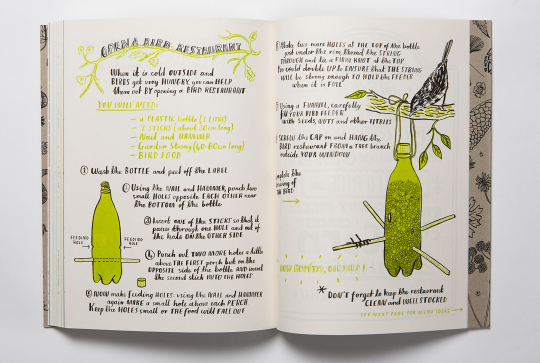 OPEN A BIRD RESTAURANT
When it is cold OUTSIDE and
BIRDS get very HUNGRY, you can HELP
them out BY opening a BIRD RESTAURANT
YOU WILL NEED:
- a PLASTIC bottle (1 litre)
- 2 STICKS (about 30cm long)
- Nail and HAMMER
- Garden String (40-60cm long)
- BIRD FOOD
① Wash the BOTTLE and peel off the LABEL
② Using the NAIL and HAMMER, punch two
small HOLES opposite EACH OTHER near
the BOTTOM of the bottle
③ Insert one of the STICKS so that it
passes through one HOLE and out of
the hole ON the OTHER SIDE
FEEDING HOLE
FEEDING HOLE
④ Punch out TWO MORE holes a little
above the FIRST perch but on the
OPPOSITE side of the bottle AND insert
the second stick INTO the HOLES
⑤ NOW make FEEDING HOLES: using the NAIL and HAMMER
again MAKE a small hole above each PERCH
Keep the HOLES small or the FOOD will FALL OUT
Make two more HOLES AT the TOP of the bottle
just under the rim, thread the STRING
through and tie a FIRM KNOT at the TOP
could double UP & ENSURE that THE STRING
WILL be strong enough TO HOLD the FEEDER
when it is FULL
Using a FUNNEL, carefully
YOUR BIRD FEEDER
with Seeds, NUTS and other TITBITS
SCREW the CAP on and HANG the
BIRD RESTAURANT FROM a tree branch
outside YOUR WINDOW
* DON'T forget to keep the RESTAURANT
CLEAN and WELL STOCKED
SEE NEXT PAGE FOR MENU IDEAS →